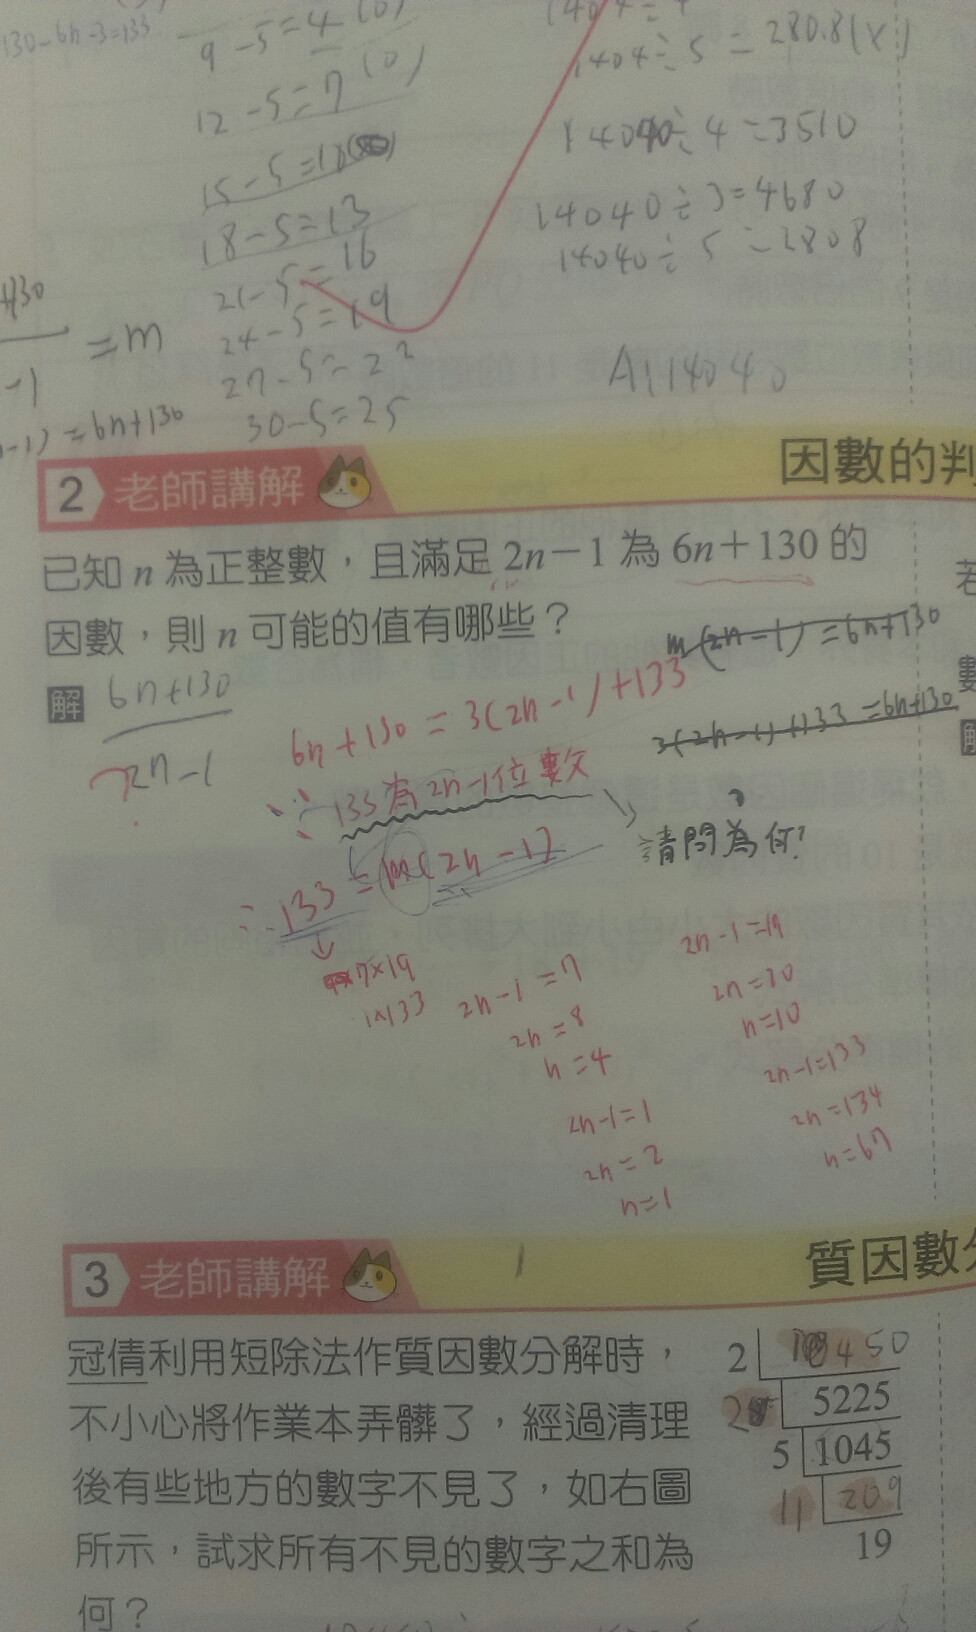 130-6n-3=133
9-5=4 (0)
12-5=7 (0)
15-5=10
18-5=13
21-5=16
24-5=19
27-5=22
30-5=25
1404÷5=280.8(x)
14040÷4=3510
14040÷3=4680
14040÷5=2808
A:14040
=m
-1
=6n+130
2 老師講解
因數的判
已知 n 為正整數，且滿足 2n－1 為 6n＋130 的
因數，則 n 可能的值有哪些？
解
6n+130
2n-1
m(2n-1)=6n+130
3(2n-1)+133=6n+130
6n+130=3(2n-1)+133
∵133為2n-1位數
請問為何?
∴133=m(2n-1)
7×19
1×133
2n-1=7
2n=8
n=4
2n-1=1
2n=2
n=1
2n-1=19
2n=20
n=10
2n-1=133
2n=134
n=67
3 老師講解
質因數分
冠倩利用短除法作質因數分解時，
不小心將作業本弄髒了，經過清理
後有些地方的數字不見了，如右圖
所示，試求所有不見的數字之和為
何？
2 10450
5225
5 1045
11 209
19